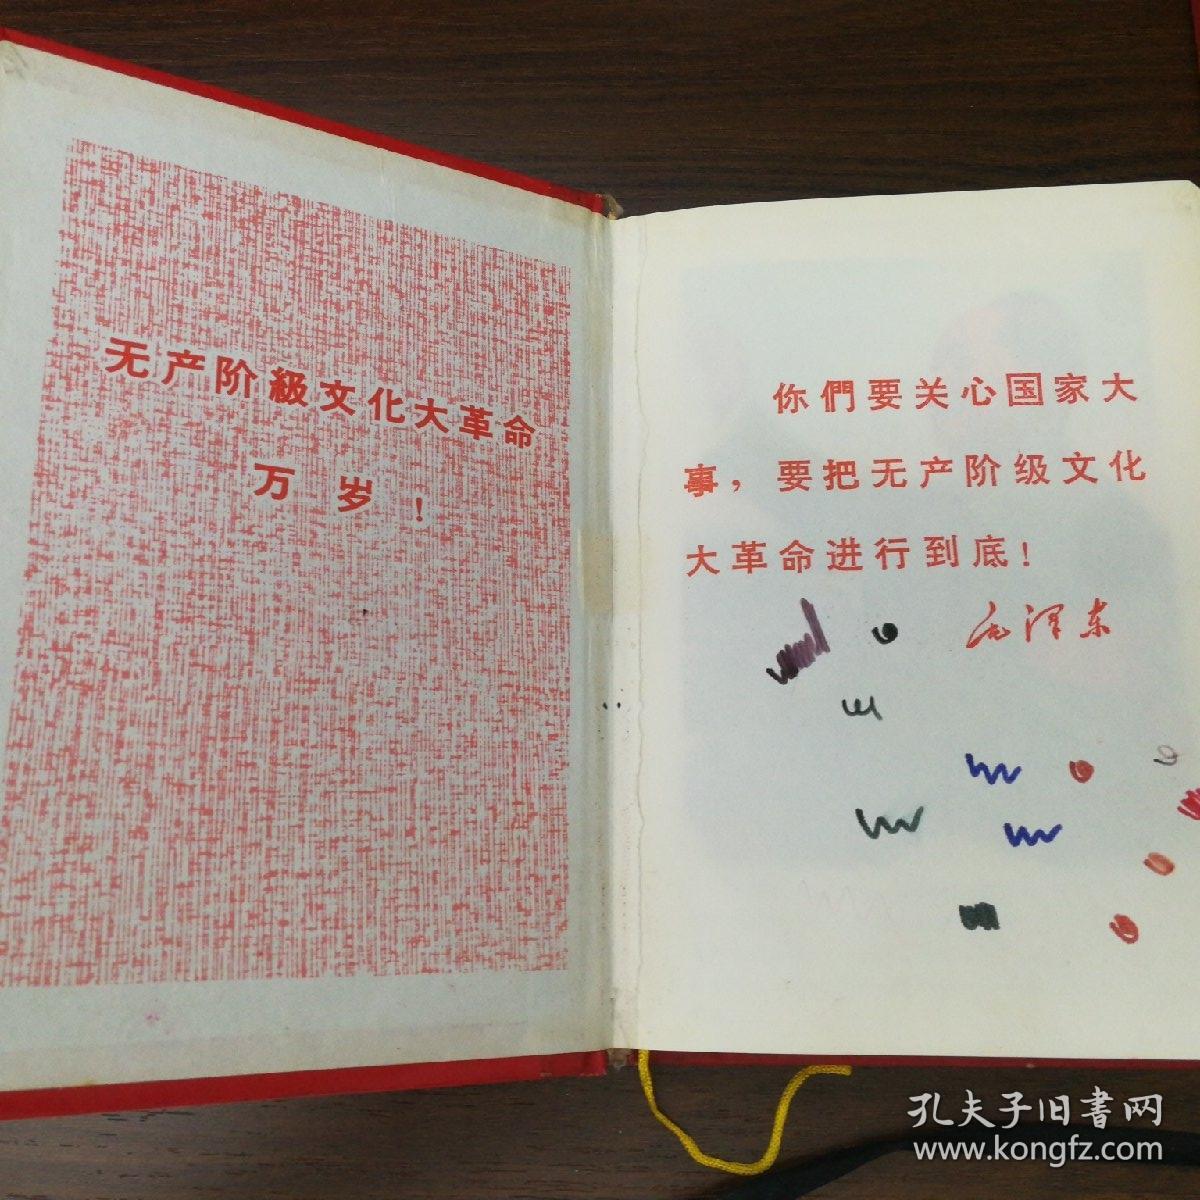 无产阶級文化大革命
万岁！
你們要关心国家大
事，要把无产阶级文化
大革命进行到底！
毛泽东
孔夫子旧書网
www.kongfz.com